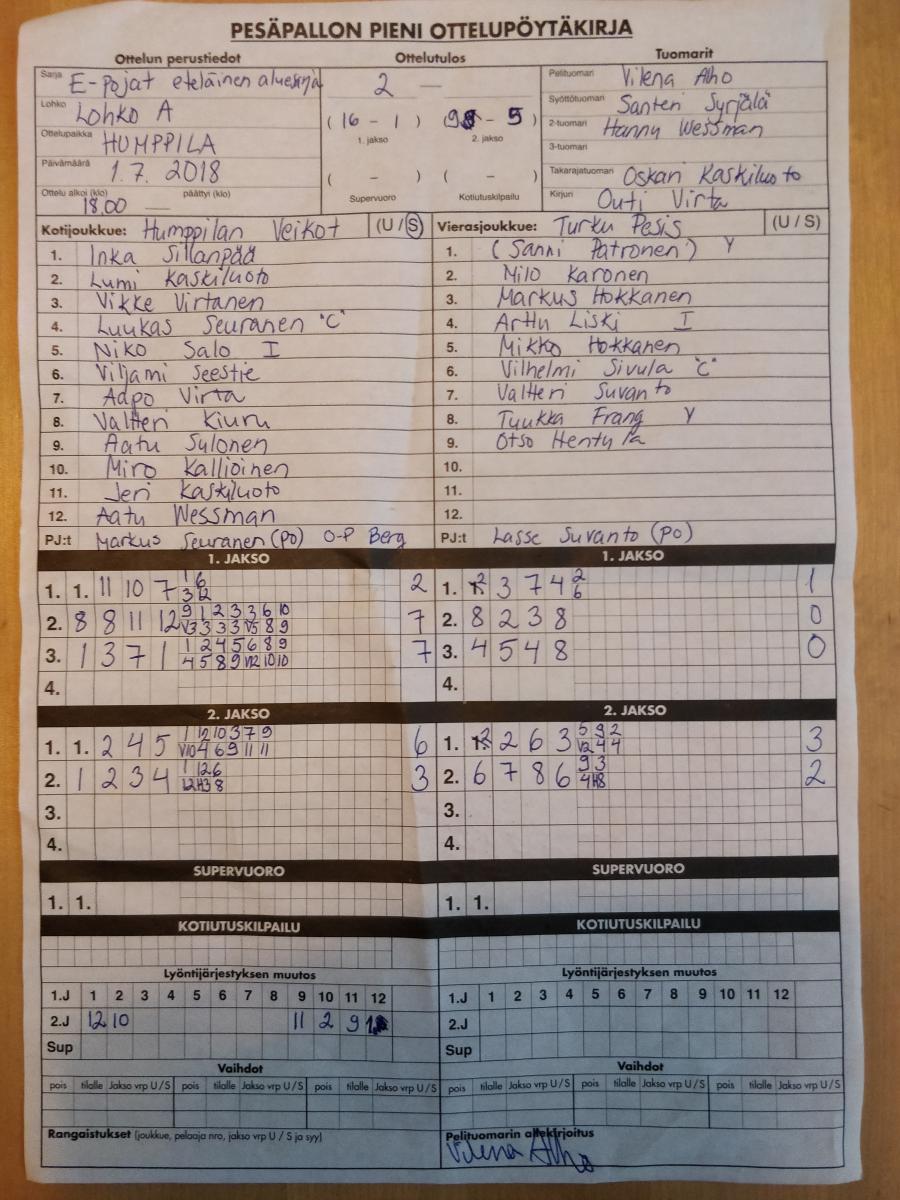 PESÄPALLON PIENI OTTELUPÖYTÄKIRJA
Ottelun perustiedot
Sarja E-pojat eteläinen aluesarja
Lohko Lohko A
Ottelupaikka HUMPPILA
Päivämäärä 1.7. 2018
Ottelu alkoi (klo) 18.00 päättyi (klo) —
Ottelutulos
2 —
( 16 - 1 ) ( 9 - 5 )
1. jakso 2. jakso
( - ) ( - )
Supervuoro Kotiutuskilpailu
Tuomarit
Pelituomari Vilena Alho
Syöttötuomari Santeri Syrjälä
2-tuomari Hannu Wessman
3-tuomari
Takarajatuomari Oskari Kaskiluoto
Kirjuri Outi Virta
Kotijoukkue: Humppilan Veikot (U / S)
1. Inka Sillanpää
2. Lumi Kaskiluoto
3. Vikke Virtanen
4. Luukas Seuranen "C"
5. Niko Salo I
6. Viljami Seestie
7. Aapo Virta
8. Valtteri Kiuru
9. Aatu Sulonen
10. Miro Kallioinen
11. Jeri Kaskiluoto
12. Aatu Wessman
PJ:t Markus Seuranen (PO) O-P Berg
Vierasjoukkue: Turku Pesis (U / S)
1. (Sanni Patronen) Y
2. Milo Karonen
3. Markus Hokkanen
4. Arttu Liski I
5. Mikko Hokkanen
6. Vilhelmi Sivula "C"
7. Valtteri Suvanto
8. Tuukka Frang Y
9. Otso Hentula
10.
11.
12.
PJ:t Lasse Suvanto (PO)
1. JAKSO
1. 1. 11 10 7 1 6 2
3 12
2. 8 8 11 12 9 1 2 3 3 6 10 7
V3 3 3 3 V5 8 9
3. 1 3 7 1 1 2 4 5 6 8 9 7
4 5 8 9 V12 10 10
4.
1. JAKSO
1. 2 3 7 4 2 1
6
2. 8 2 3 8 0
3. 4 5 4 8 0
4.
2. JAKSO
1. 1. 2 4 5 1 12 10 3 7 9 6
V10 4 6 9 11 11
2. 1 2 3 4 1 12 6 3
12 H3 8
3.
4.
2. JAKSO
1. 2 2 6 3 5 9 2 3
V2 4 4
2. 6 7 8 6 9 3 2
4 H8
3.
4.
SUPERVUORO
1. 1.
SUPERVUORO
1. 1.
KOTIUTUSKILPAILU
KOTIUTUSKILPAILU
Lyöntijärjestyksen muutos
1.J 1 2 3 4 5 6 7 8 9 10 11 12
2.J 12 10 11 2 9 1
Sup
Lyöntijärjestyksen muutos
1.J 1 2 3 4 5 6 7 8 9 10 11 12
2.J
Sup
Vaihdot
pois tilalle Jakso vrp U / S pois tilalle Jakso vrp U / S pois tilalle Jakso vrp U / S
Vaihdot
pois tilalle Jakso vrp U / S pois tilalle Jakso vrp U / S pois tilalle Jakso vrp U / S
Rangaistukset (joukkue, pelaaja nro, jakso vrp U / S ja syy)
Pelituomarin allekirjoitus
Vilena Alho